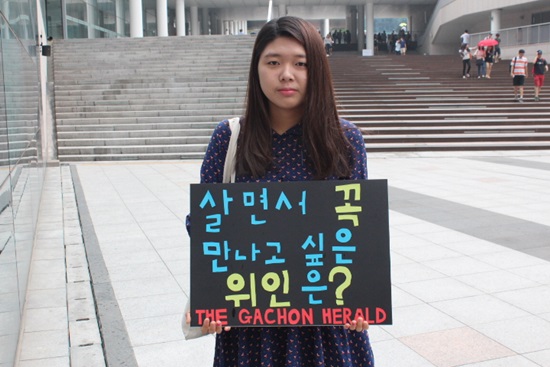 살면서 꼭
만나고 싶은
위인은?
THE GACHON HERALD